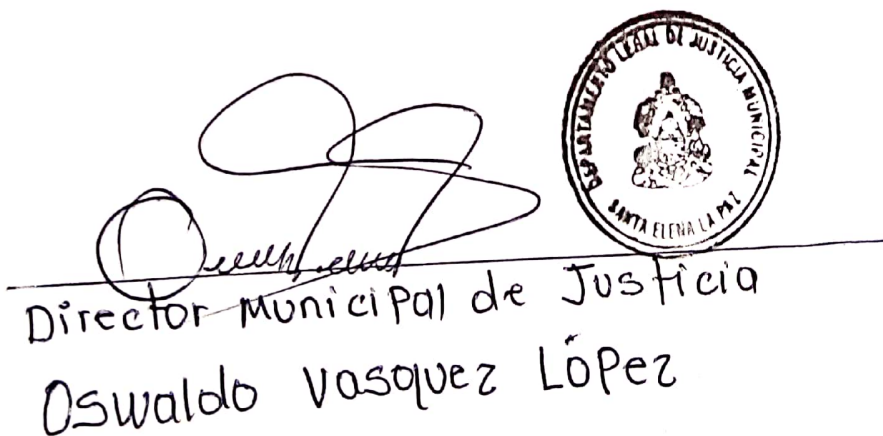 DEPARTAMENTO LEGAL DE JUSTICIA MUNICIPAL
SANTA ELENA LA PAZ
Director Municipal de Justicia
Oswaldo Vasquez López